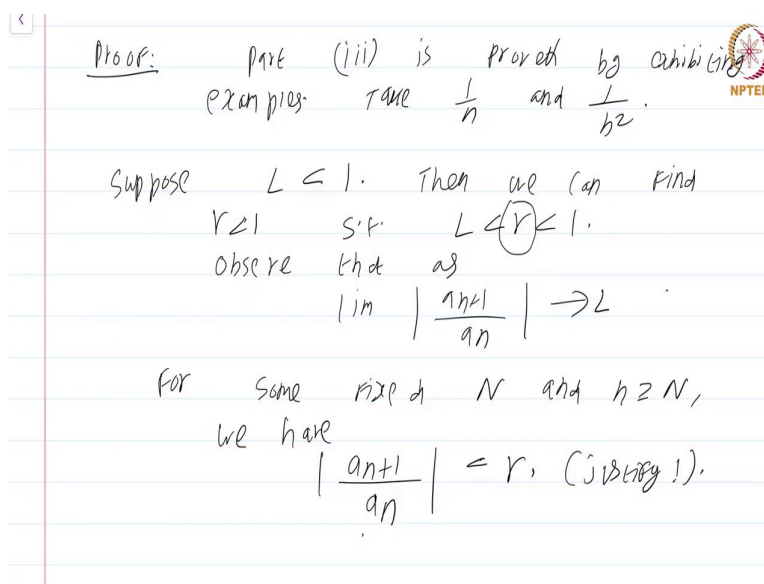 Proof: Part (iii) is proved by exhibiting
examples. Take 1/n and 1/n².
NPTEL
Suppose L < 1. Then we can find
r<1 s.t. L < r < 1.
observe that as
lim | an+1 / an | → L
For some fixed N and n ≥ N,
we have
| an+1 / an | < r, (justify!).